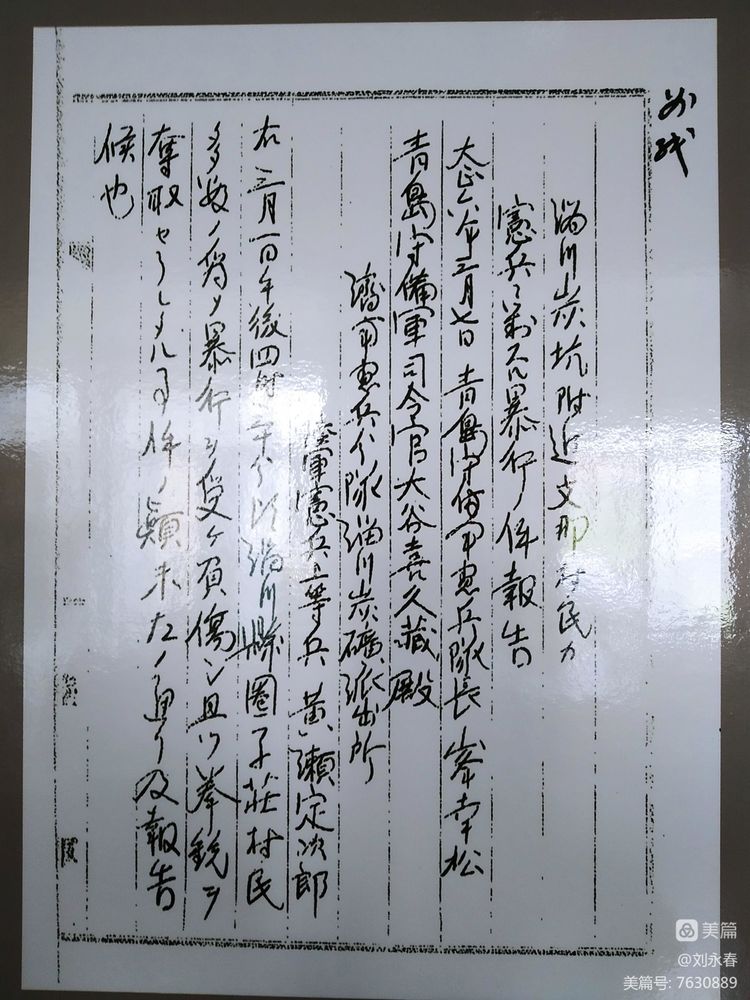 淄川炭坑附近支那村民カ
憲兵ニ対スル暴行ノ件報告
大正六年三月七日 青島守備軍憲兵隊長 峯幸松
青島守備軍司令官大谷喜久蔵殿
濟南憲兵分隊淄川炭礦派出所
陸軍憲兵上等兵 黄瀬定次郎
右三月一日午後四時三十分頃淄川縣圈子莊村民
多数ノ為メ暴行ヲ受ケ負傷シ且ツ拳銃ヲ
奪取セラレタル事件ノ顛末左ノ通リ及報告
候也
美篇
@刘永春
美篇号: 7630889